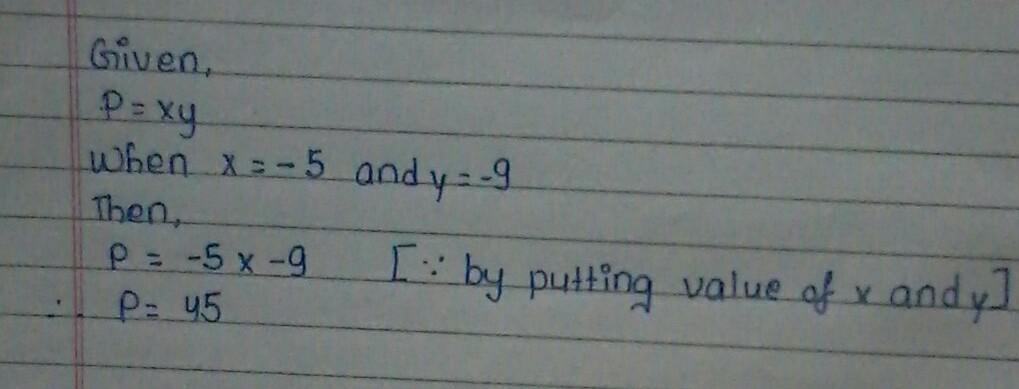 Given,
P = xy
When x = -5 and y = -9
Then,
P = -5 x -9 [∵ by putting value of x and y]
∴ P = 45